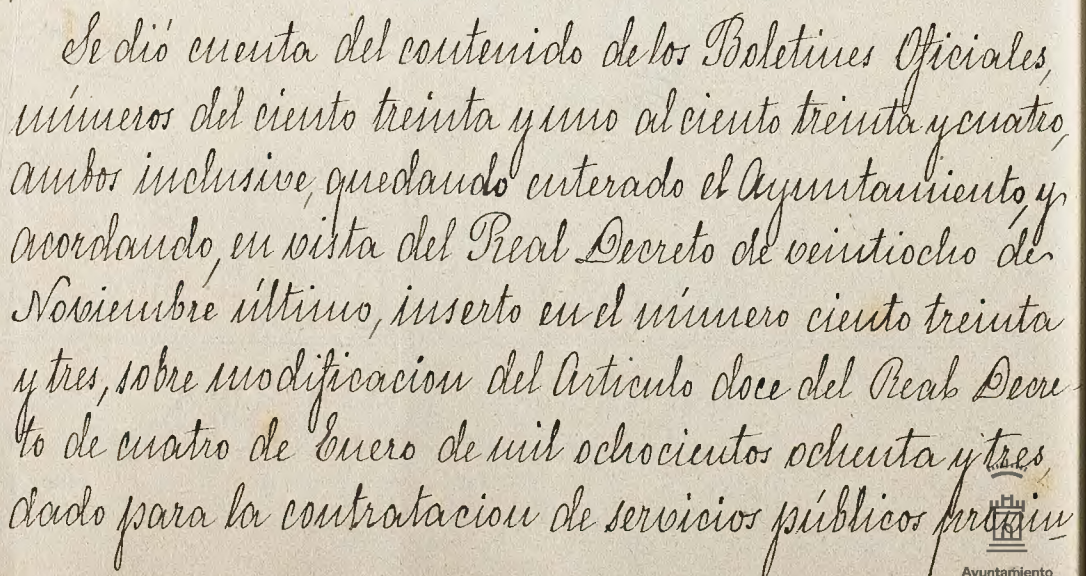 Se dió cuenta del contenido de los Boletines Oficiales,
números del ciento treinta y uno al ciento treinta y cuatro,
ambos inclusive, quedando enterado el Ayuntamiento, y
acordando, en vista del Real Decreto de veintiocho de
Noviembre último, inserto en el número ciento treinta
y tres, sobre modificacion del Articulo doce del Real Decre-
to de cuatro de Enero de mil ochocientos ochenta y tres,
dado para la contratacion de servicios públicos provin-
Ayuntamiento